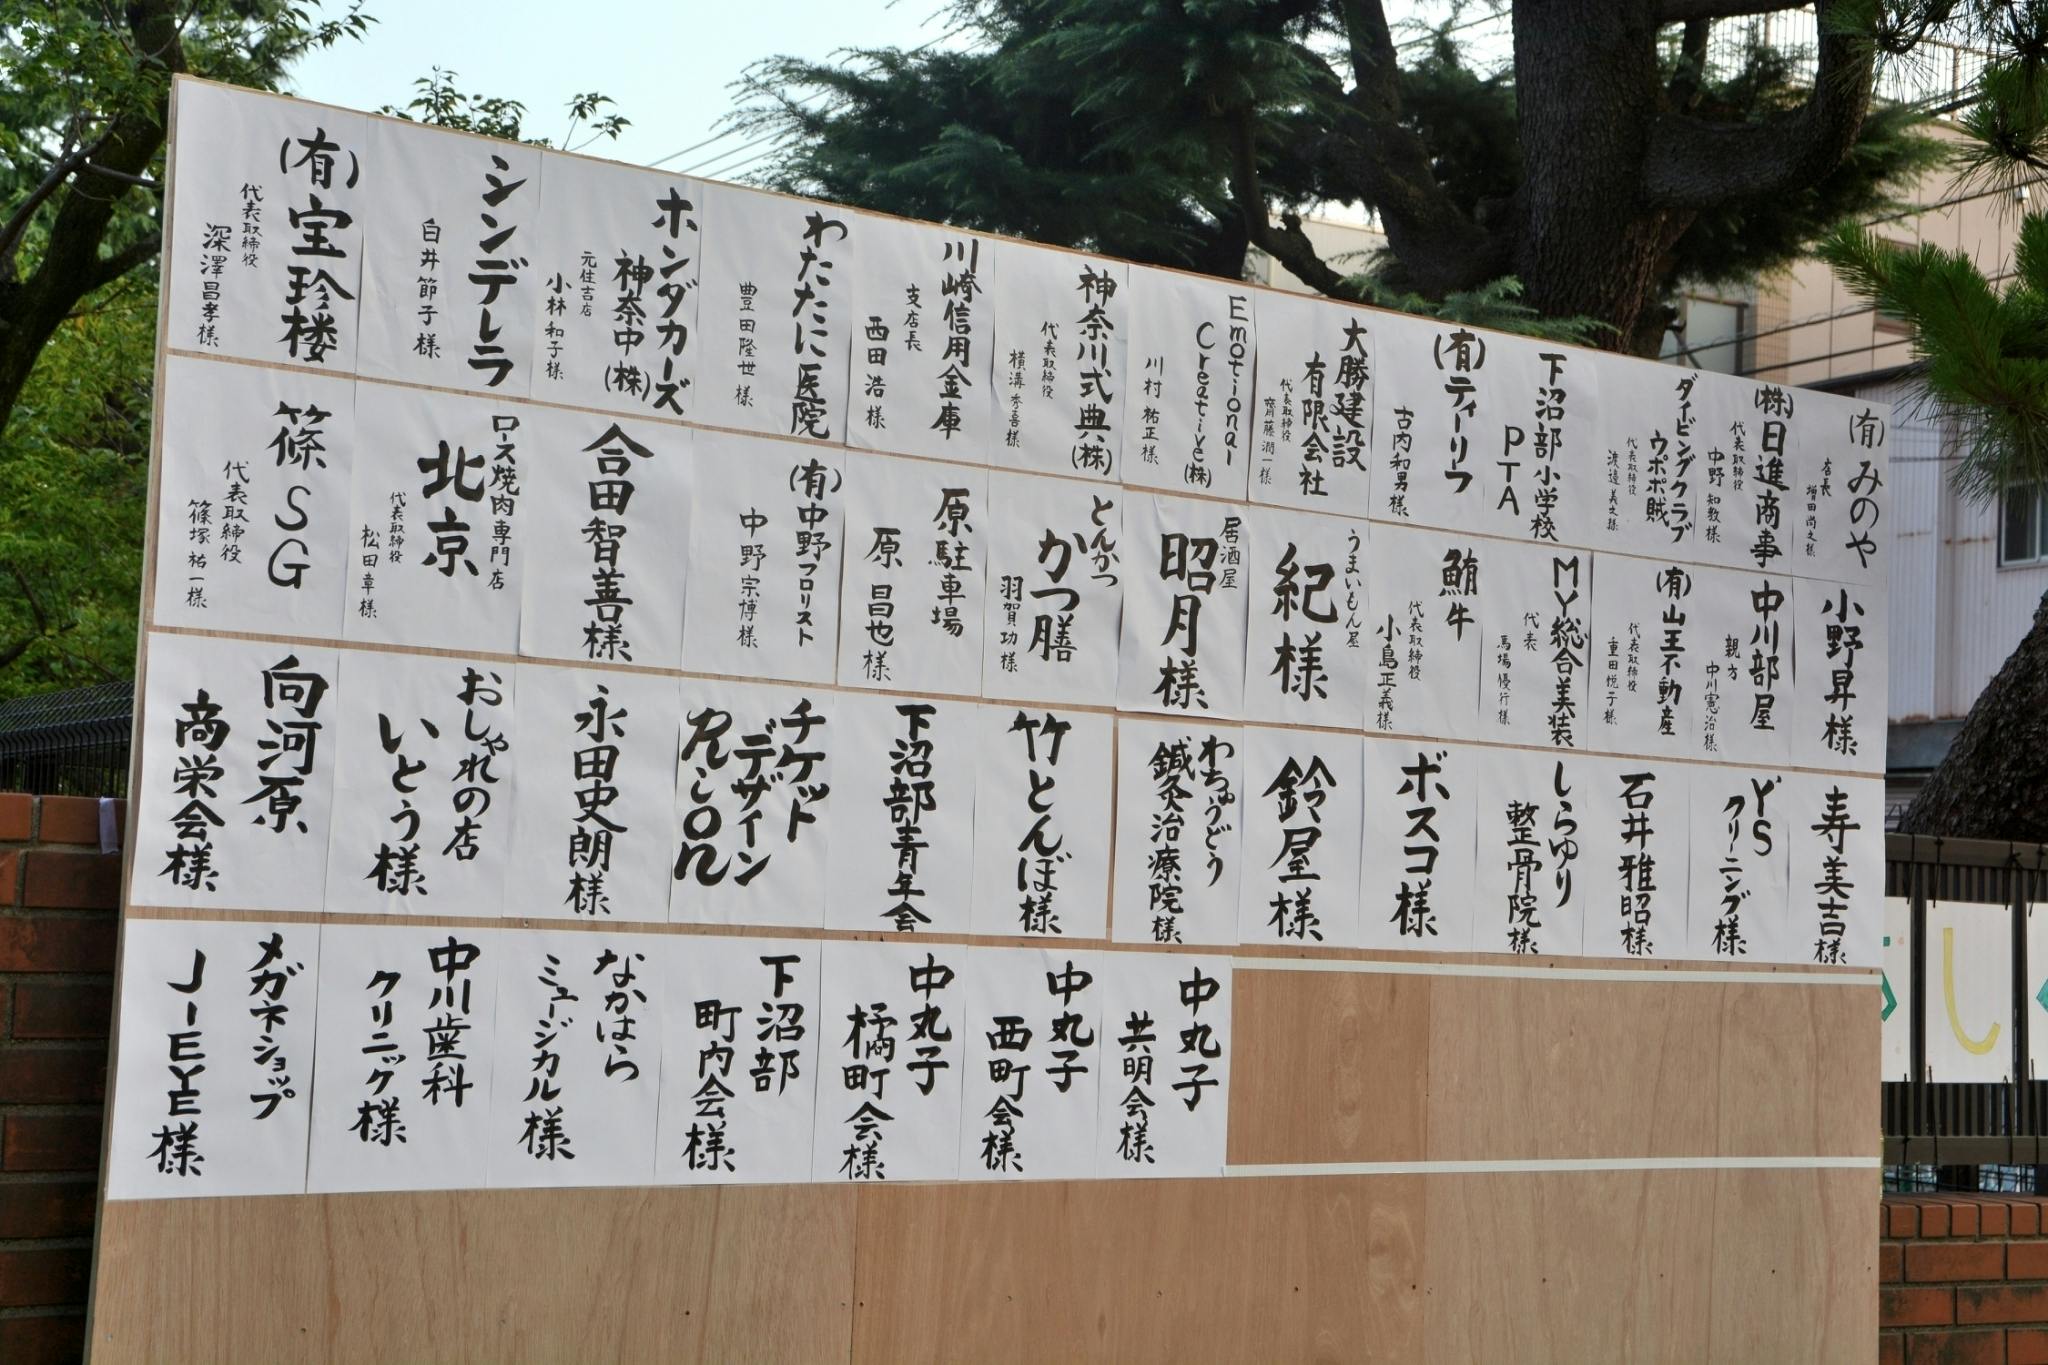 (有)みのや
店長
増田尚之様
(株)日進商事
代表取締役
中野知教様
ダイビングクラブ
ウポポ賊
代表取締役
渡邉美之様
下沼部小学校
PTA
(有)ティーリフ
古内和男様
大勝建設
有限会社
代表取締役
齊藤潤一様
Emotional
Creative(株)
川村祐正様
神奈川式典(株)
代表取締役
横溝秀喜様
川崎信用金庫
支店長
西田浩様
わたたに医院
豊田隆世様
ホンダカーズ
神奈中(株)
元住吉店
小林和子様
シンデレラ
白井節子様
(有)宝珍楼
代表取締役
深澤昌孝様
小野昇様
中川部屋
親方
中川憲治様
(有)山王不動産
代表取締役
重田悦子様
MY総合美装
代表
馬場優行様
鮪牛
代表取締役
小島正義様
うまいもん屋
紀様
居酒屋
昭月様
とんかつ
かつ膳
羽賀功様
原駐車場
原昌也様
(有)中野フロリスト
中野宗博様
合田智善様
ロース焼肉専門店
北京
代表取締役
松田章様
篠SG
代表取締役
篠塚祐一様
寿美吉様
YS
クリーニング様
石井雅昭様
しらゆり
整骨院様
ボスコ様
鈴屋様
わちゅうどう
鍼灸治療院様
竹とんぼ様
下沼部青年会
チケット
デザイン
永田史朗様
おしゃれの店
いとう様
向河原
商栄会様
中丸子
共明会様
中丸子
西町会様
中丸子
橘町会様
下沼部
町内会様
なかはら
ミュージカル様
中川歯科
クリニック様
メガネショップ
J-EYE様
し